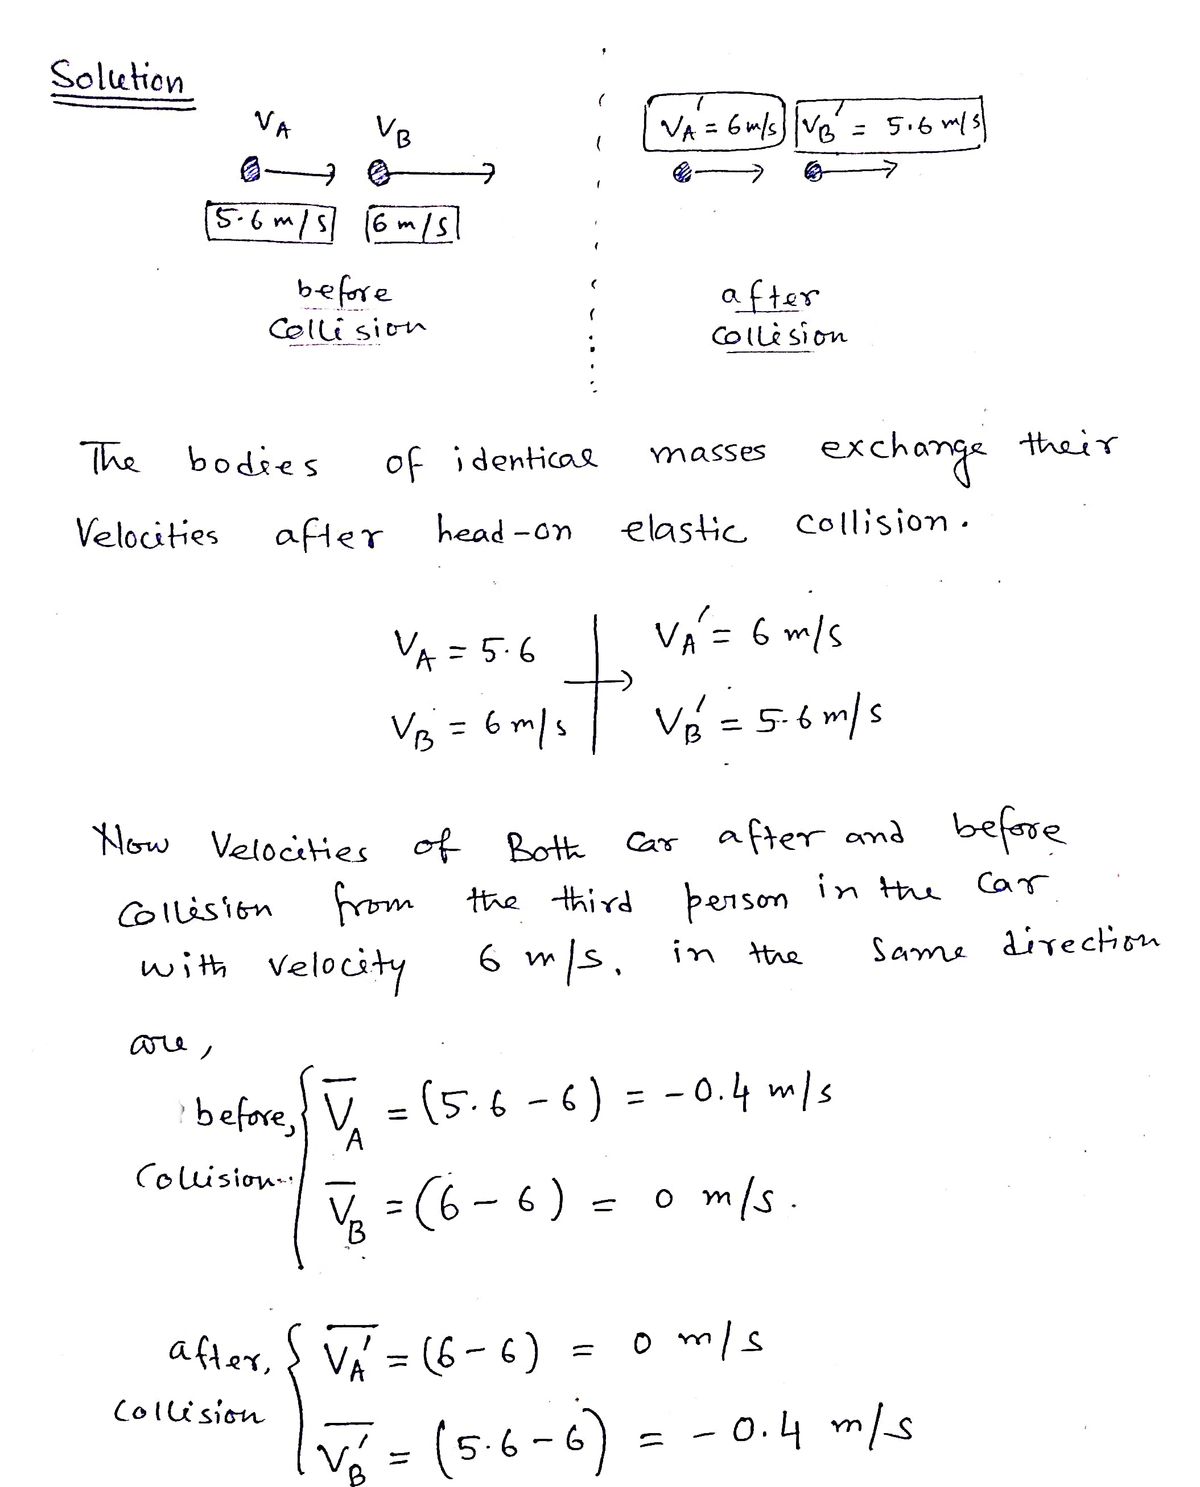 Solution
VA VB
5.6 m/s 6 m/s
before
Collision
VA' = 6 m/s VB' = 5.6 m/s
after
Collision
The bodies of identical masses exchange their
Velocities after head-on elastic collision.
VA = 5.6 VA' = 6 m/s
VB = 6 m/s VB' = 5.6 m/s
Now Velocities of Both Car after and before
Collision from the third person in the Car
with velocity 6 m/s. in the same direction
are,
before, V̅A = (5.6 - 6) = -0.4 m/s
Collision V̅B = (6 - 6) = 0 m/s.
after, V̅A' = (6 - 6) = 0 m/s
Collision V̅B' = (5.6 - 6) = -0.4 m/s